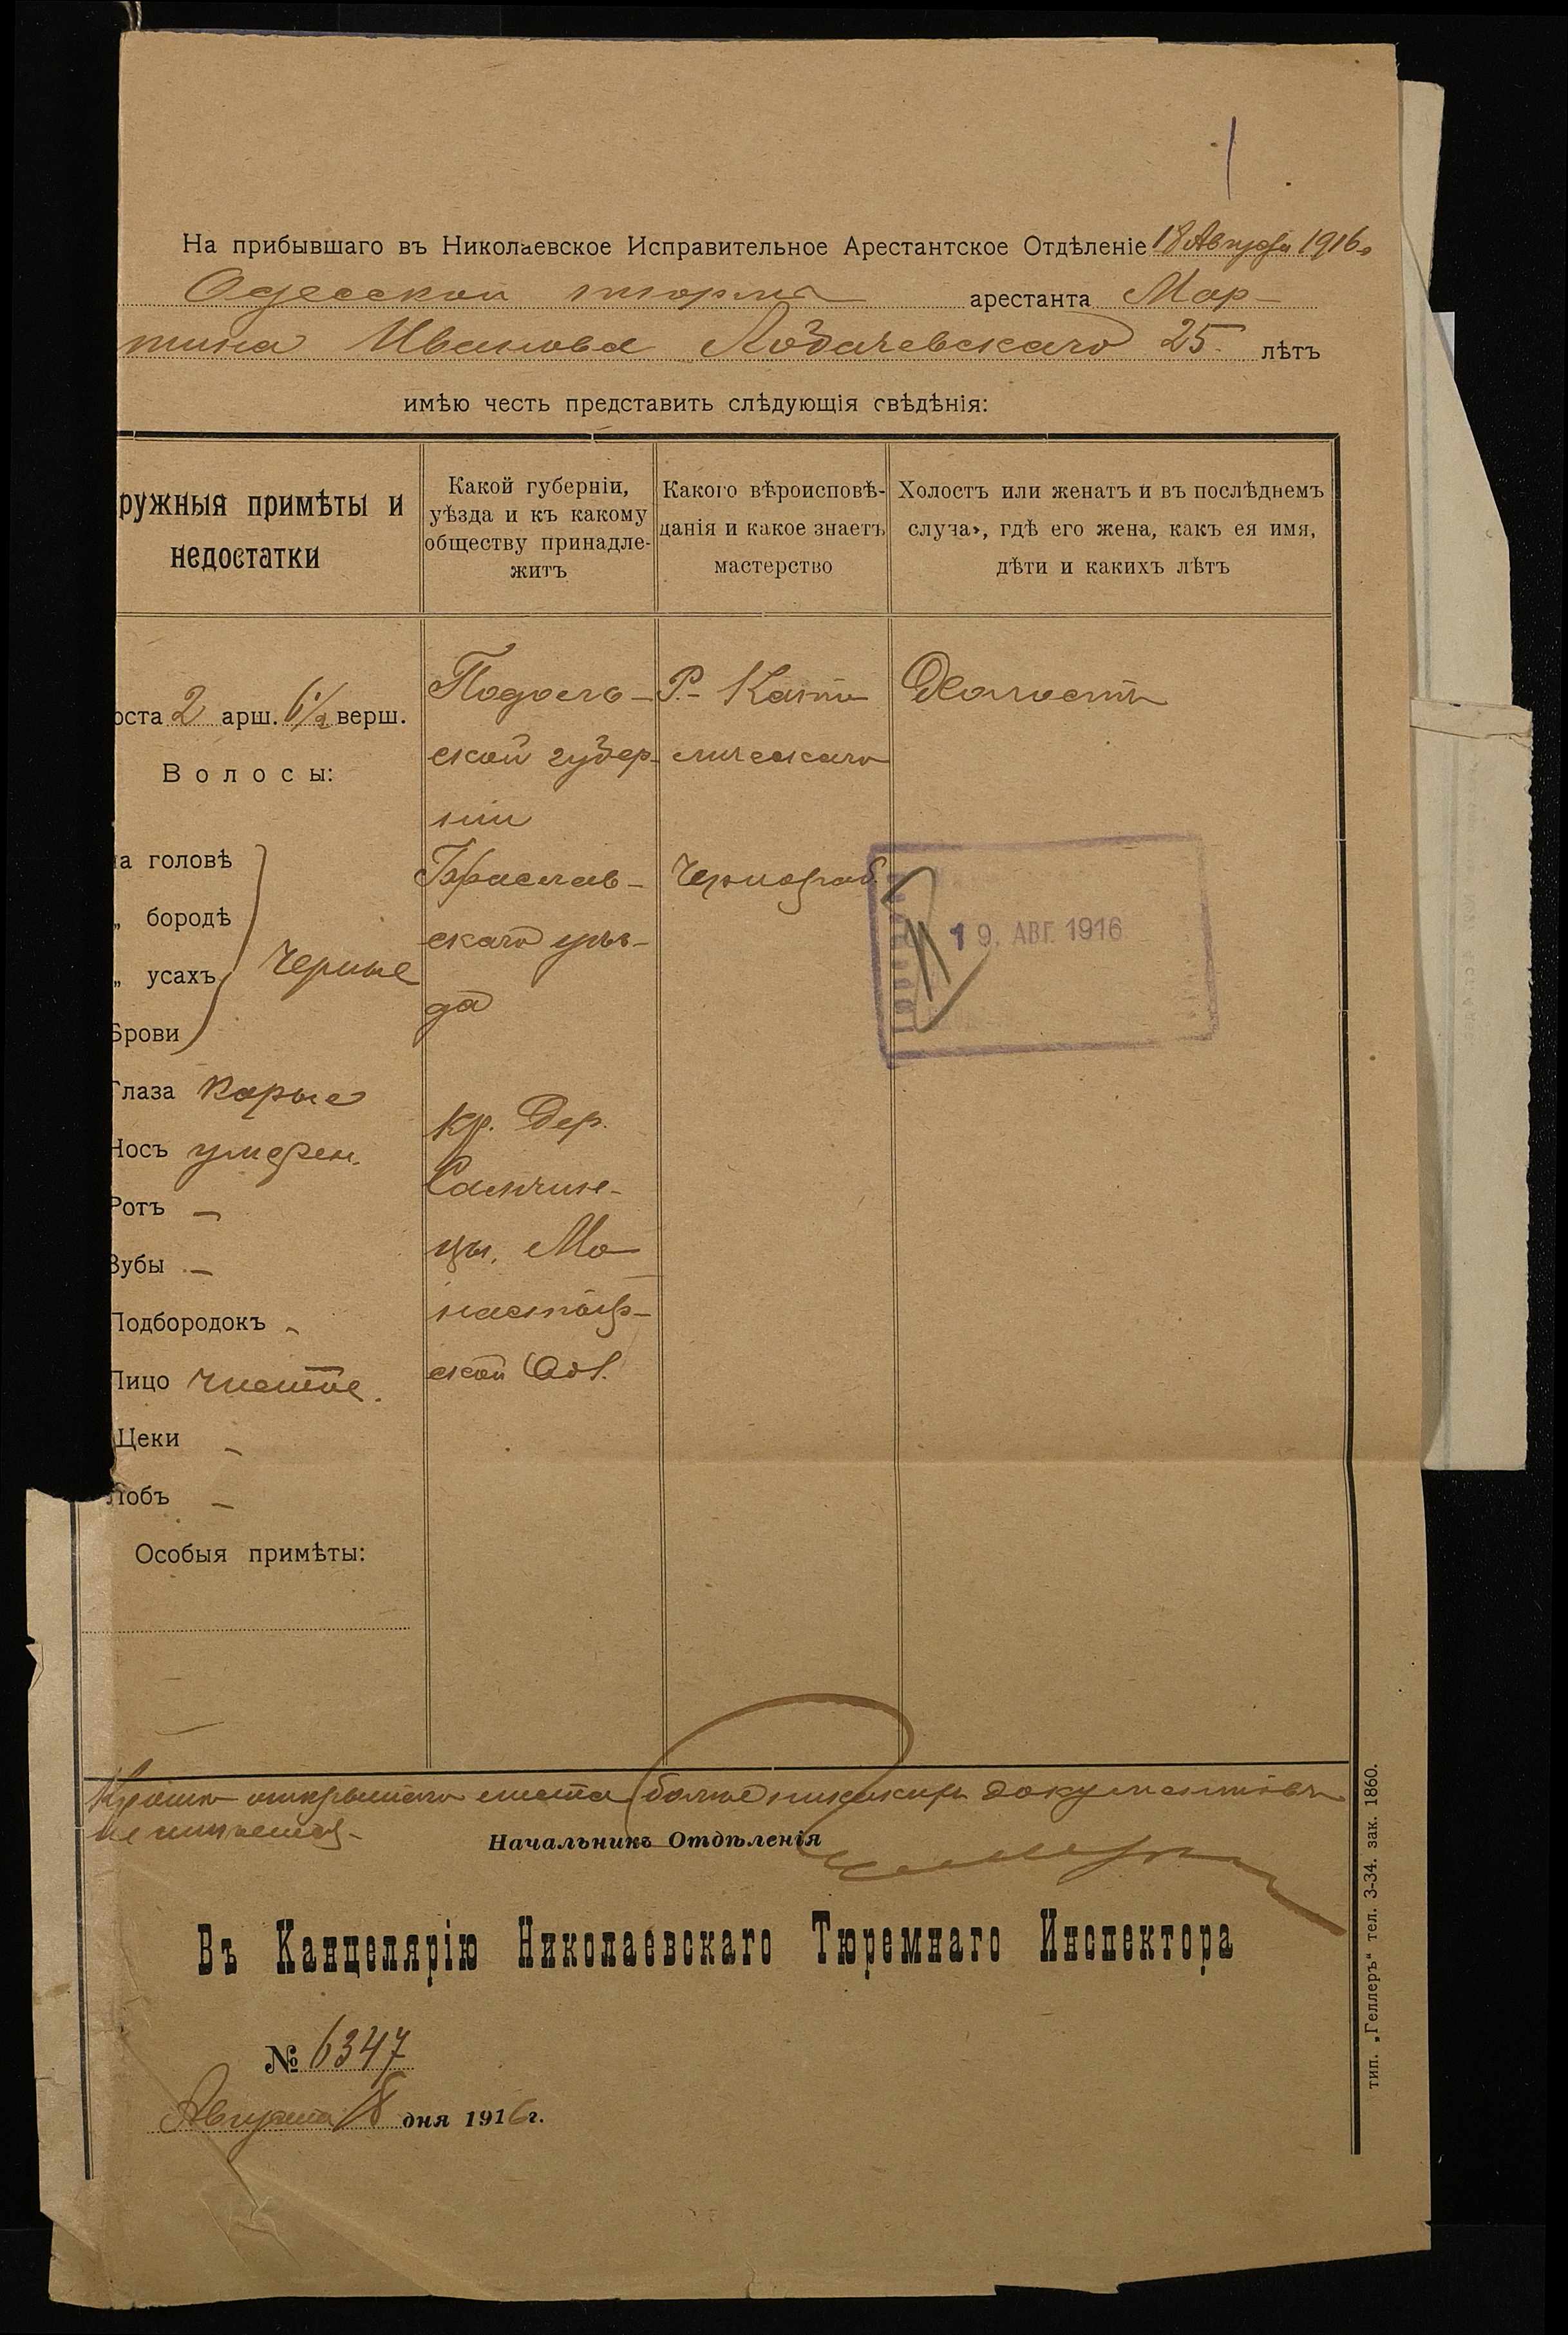 На прибывшаго въ Николаевское Исправительное Арестантское Отдѣленіе 18 Августа 1916 г
Одесской тюрьмы арестанта Мар-
тина Иванова Лобачевскаго 25 лѣтъ
имѣю честь представить слѣдующія свѣдѣнія:
ружныя примѣты и
недостатки
Какой губерніи,
уѣзда и къ какому
обществу принадле-
житъ
Какого вѣроисповѣ-
данія и какое знаетъ
мастерство
Холостъ или женатъ и въ послѣднемъ
случаѣ, гдѣ его жена, какъ ея имя,
дѣти и какихъ лѣтъ
оста 2 арш. 6 1/2 верш.
Волосы:
на головѣ
„ бородѣ
„ усахъ
Брови
Черные
Глаза Карые
Носъ умерен.
Ротъ —
Зубы —
Подбородокъ -
Лицо чистое.
Щеки -
Лобъ —
Особыя примѣты:
Подоль-
ской губер-
ніи
Брацлав-
скаго уѣз-
да
Кр. Дер.
Самчин-
цы, Мо-
настыр-
ской
Р.- Като
лическаго
Чернораб.
Холостъ
19. АВГ. 1916
Кромѣ открытаго листа болѣе никакихъ документовъ
не имѣется-
Начальникъ Отдѣленія
Въ Канцелярію Николаевскаго Тюремнаго Инспектора
№ 6347
Августа 18 дня 1916 г.
тип. „Геллеръ“ тел. 3-34. зак. 1860.